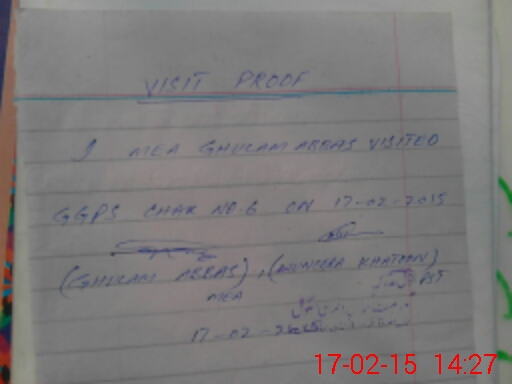 VISIT PROOF
I MEA GHULAM ABBAS VISITED
GGPS CHAK NO. 6 ON 17-02-2015
(GHULAM ABBAS), (MUNEERA KHATOON)
MEA PST
17-02-2015
17-02-15 14:27